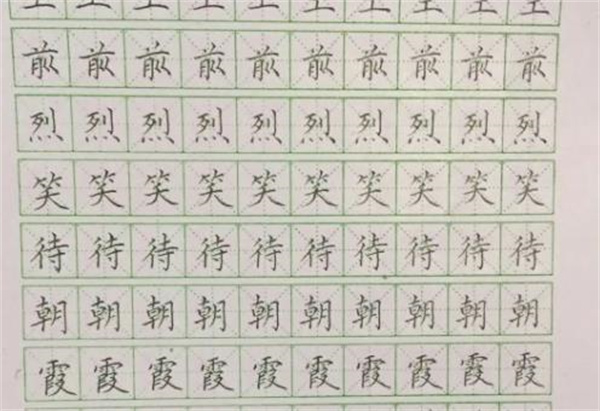 前前前前前前前前前前
烈烈烈烈烈烈烈烈烈烈
笑笑笑笑笑笑笑笑笑笑
待待待待待待待待待待
朝朝朝朝朝朝朝朝朝朝
霞霞霞霞霞霞霞霞霞霞